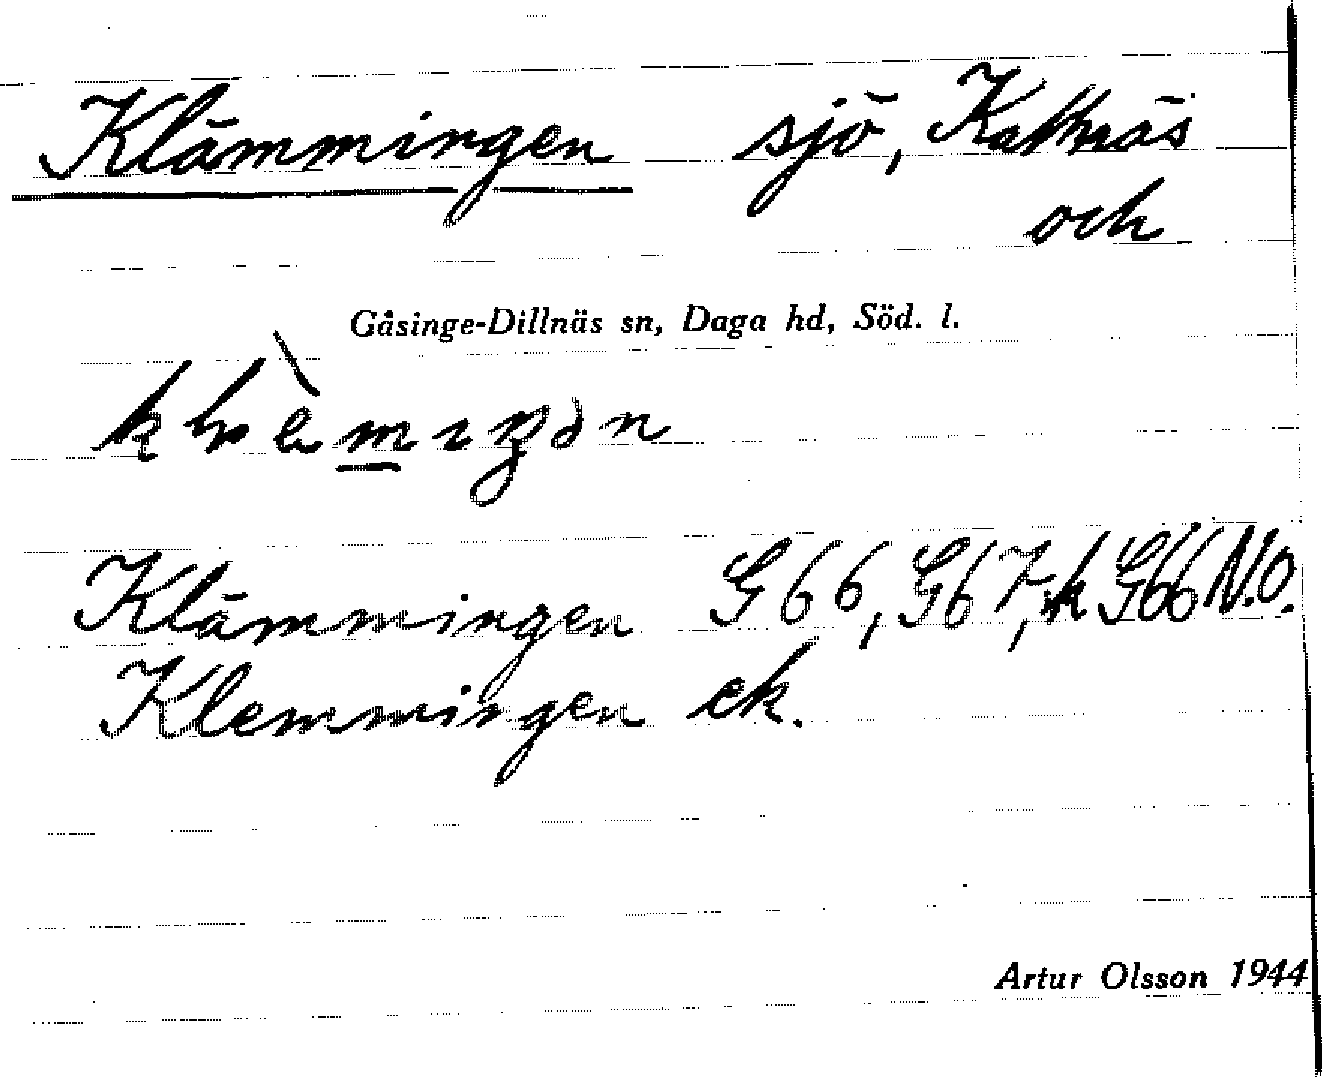 Klämmingen sjö, Kattnäs
och
Gåsinge-Dillnäs sn, Daga hd, Söd. l.
Klämmingen G66, G67, k G66 N.O.
Klemmingen ek.
Artur Olsson 1944